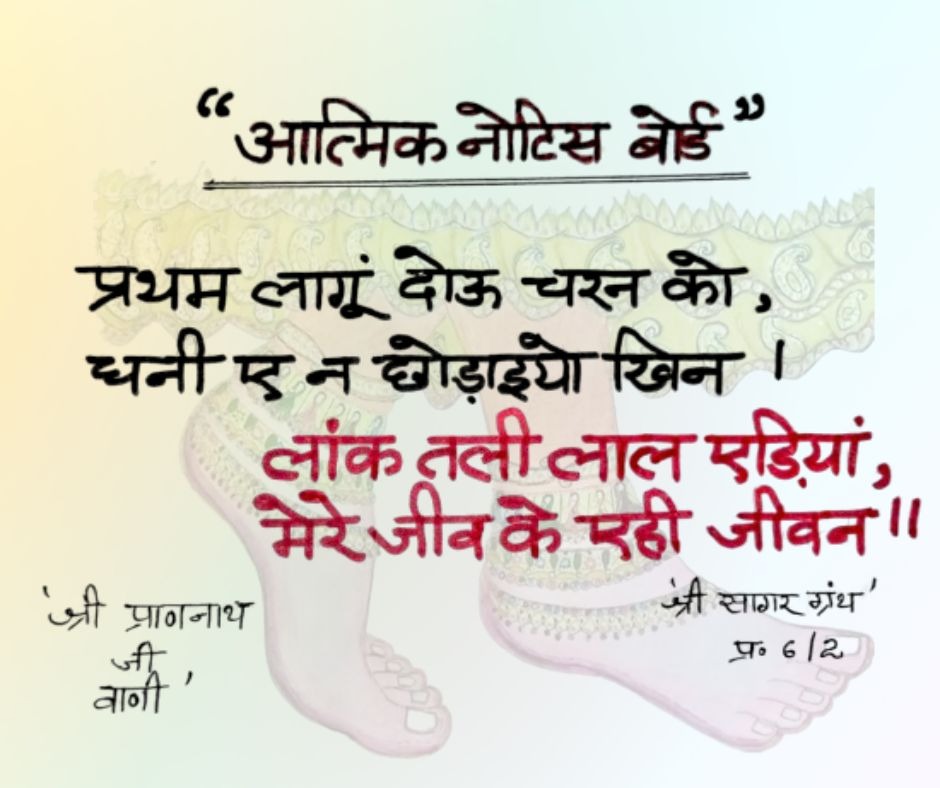 “आत्मिक नोटिस बोर्ड”
प्रथम लागूं दोऊ चरन को,
धनी ए न छोड़ाइयो खिन ।
लांक तली लाल एड़ियां,
मेरे जीव के एही जीवन ॥
'श्री प्राणनाथ
जी
वाणी'
'श्री सागर ग्रंथ'
प्र० 6/2